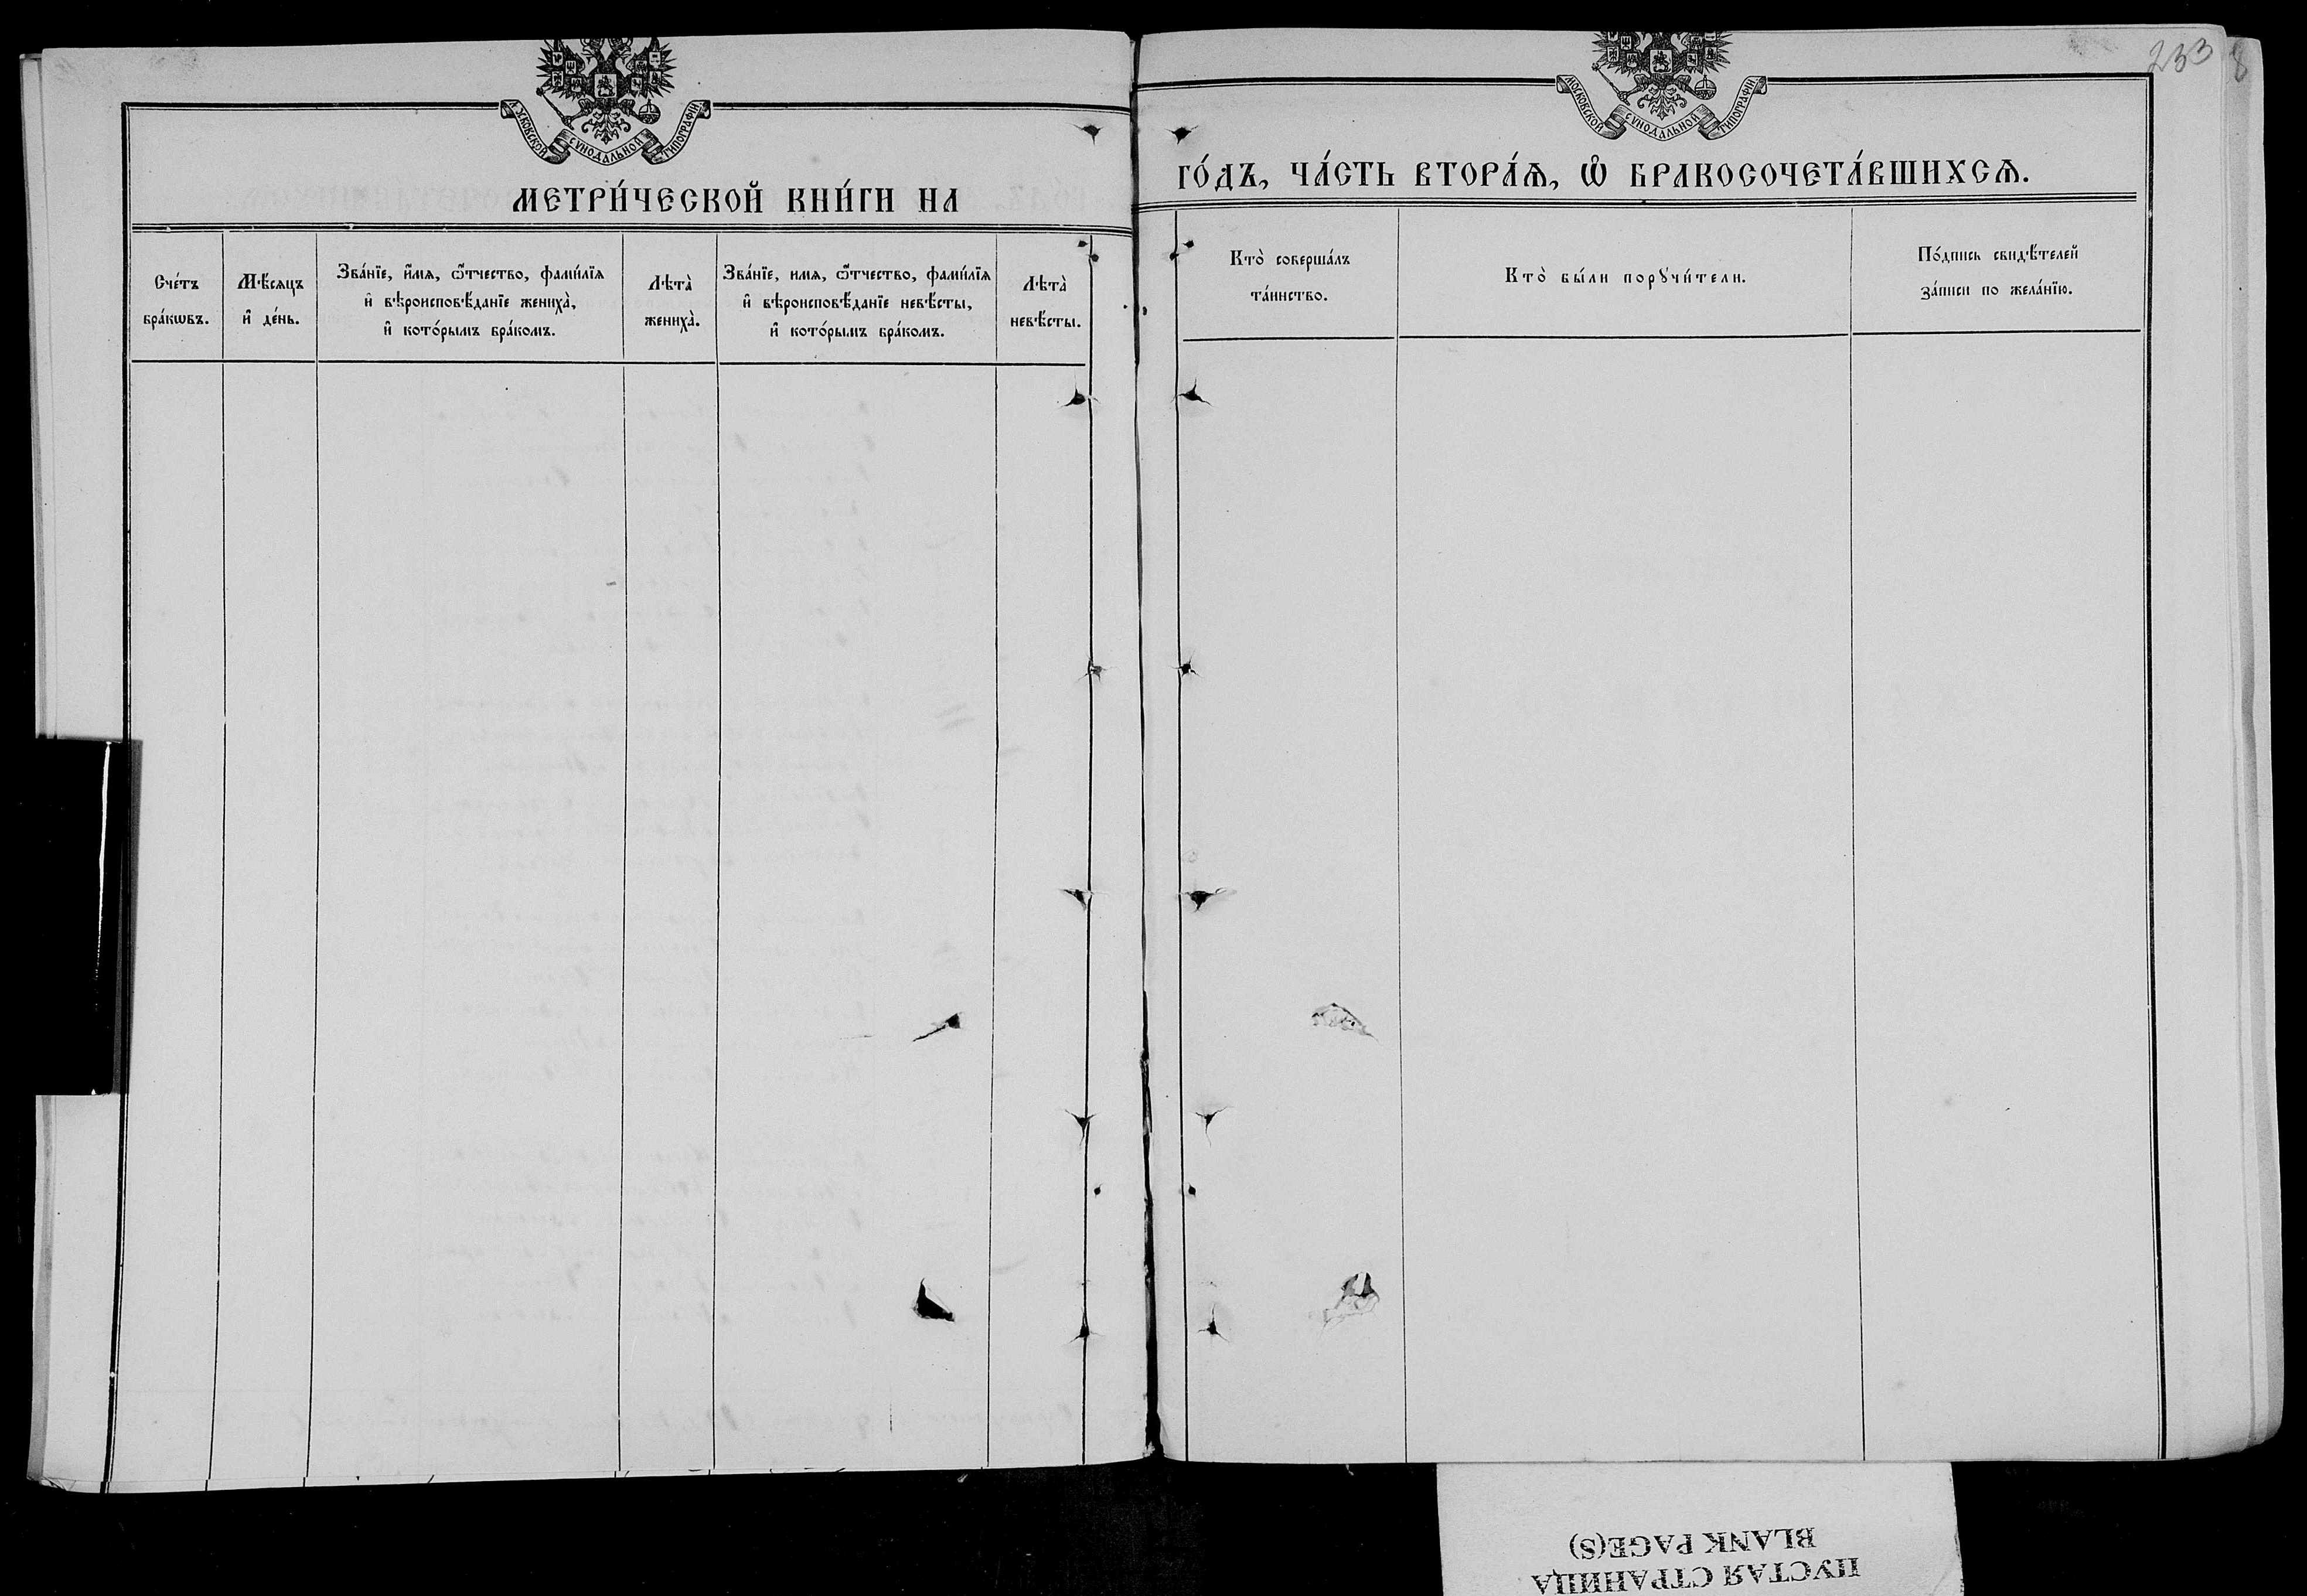 МОСКОВСКОЙ СѴНОДАЛЬНОЙ ТИПОГРАФІИ
МЕТРИ́ЧЕСКОЙ КНИ́ГИ НА
Сче́тъ
бра́кѡвъ.
Мѣ́сяцъ
и҆ де́нь.
Зва́нїе, и҆́мя, ѻ҆́тчество, фами́лїя
и҆ вѣроисповѣ́данїе женихà,
и҆ кото́рымъ бра́комъ.
Лѣтà
женихà.
Зва́нїе, имя, ѻ҆́тчество, фами́лїя
и҆ вѣроисповѣ́данїе невѣ́сты,
и҆ кото́рымъ бра́комъ.
Лѣтà
невѣ́сты.
233
МОСКОВСКОЙ СѴНОДАЛЬНОЙ ТИПОГРАФІИ
ГО́ДЪ, ЧА́СТЬ ВТОРА́Ѧ, Ѽ БРАКОСОЧЕТА́ВШИХСѦ.
Кто̀ соверша́лъ
та́инство.
Кто̀ бы́ли порꙋчи́тели.
По́дпись свидѣ́телей
за́писи по жела́нїю.
ПУСТАЯ СТРАНИЦА
BLANK PAGE(S)